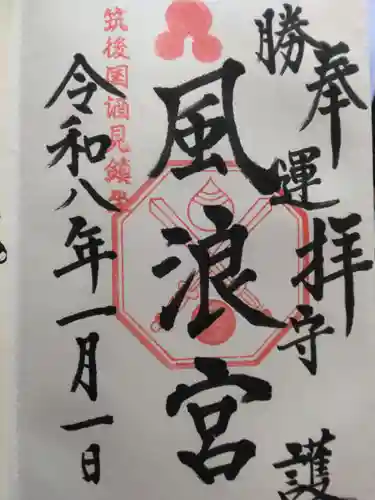 奉拝
勝運守護
風浪宮
筑後国酒見鎮座
令和八年一月一日